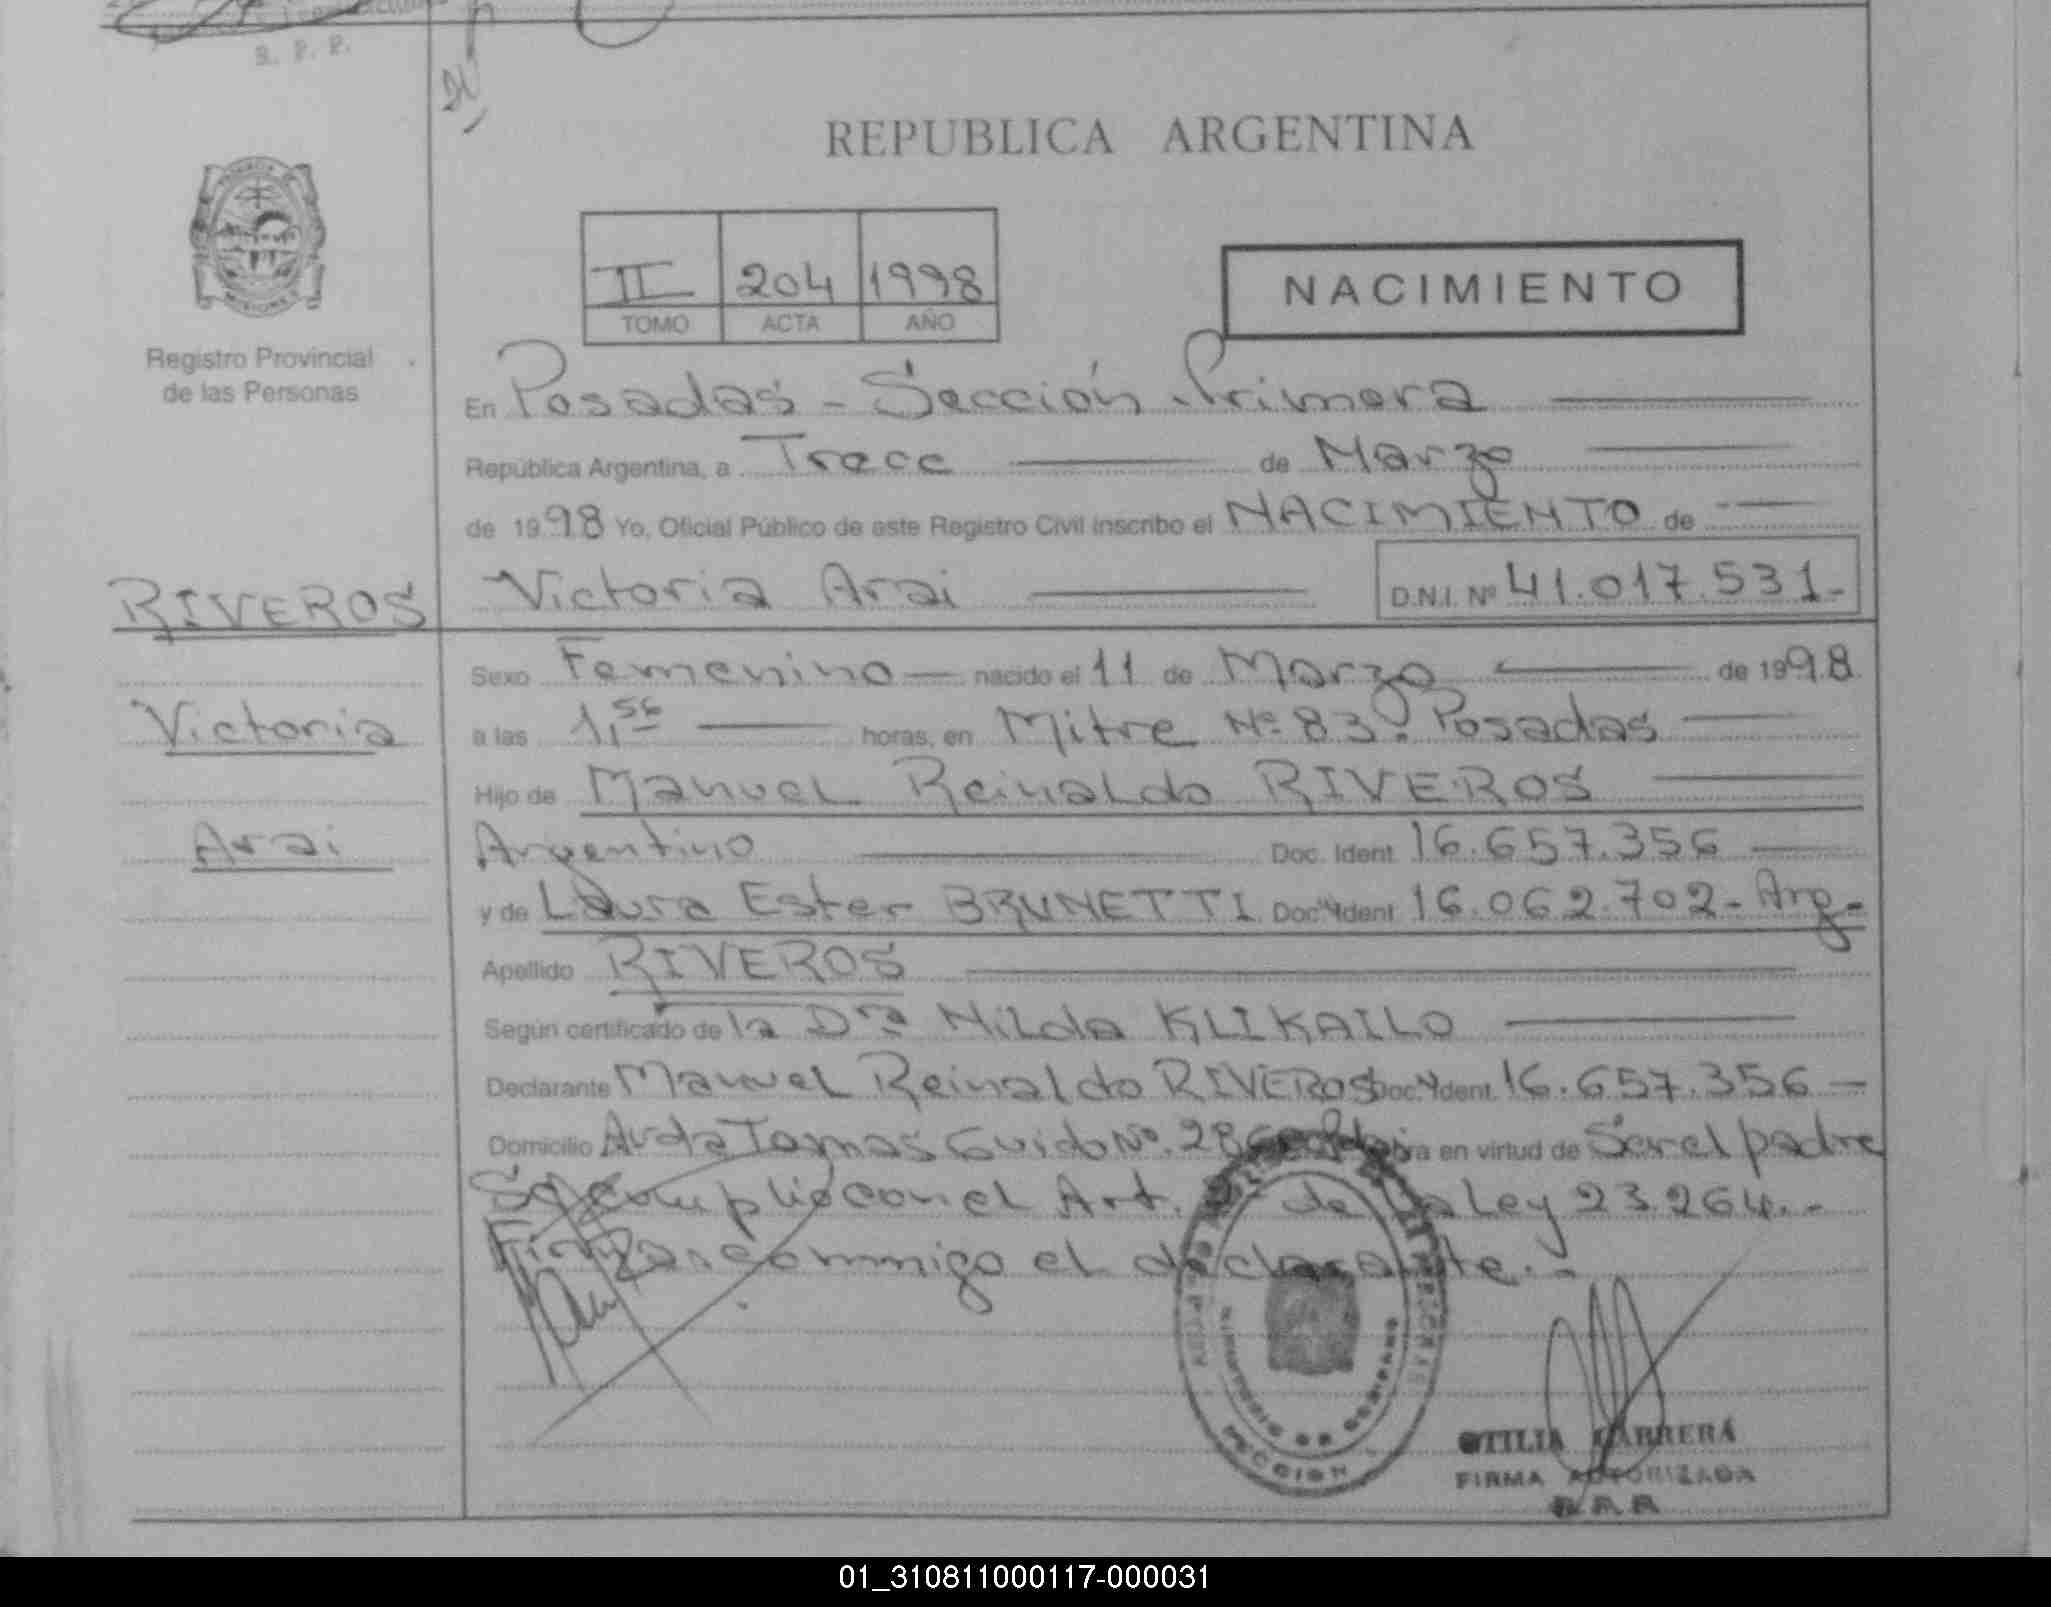 R. P. P.
REPUBLICA ARGENTINA
II 204 1998
TOMO ACTA AÑO
NACIMIENTO
Registro Provincial
de las Personas
En Posadas - Sección Primera
República Argentina, a Trece de Marzo
de 1998 Yo, Oficial Público de este Registro Civil inscribo el NACIMIENTO de
RIVEROS Victoria Arai D.N.I. Nº 41.017.531-
Sexo Femenino nacido el 11 de Marzo de 1998
Victoria a las 1,56 horas, en Mitre Nº 83. Posadas
Hijo de Manuel Reinaldo RIVEROS
Arai Argentino Doc. Ident 16.657.356
y de Laura Ester BRUNETTI Doc. Ident 16.062.702- Arg-
Apellido RIVEROS
Según certificado de la Dra Nilda KLIKAILO
Declarante Manuel Reinaldo RIVEROS Doc. Ident. 16.657.356
Domicilio Avda Tomas Guido Nº. en virtud de Ser el padre
Se cumplio con el Art. de la Ley 23.264.-
Firma conmigo el declarante.-
SECCION
OTILIA CABRERA
FIRMA AUTORIZADA
R.P.P.
01_310811000117-000031